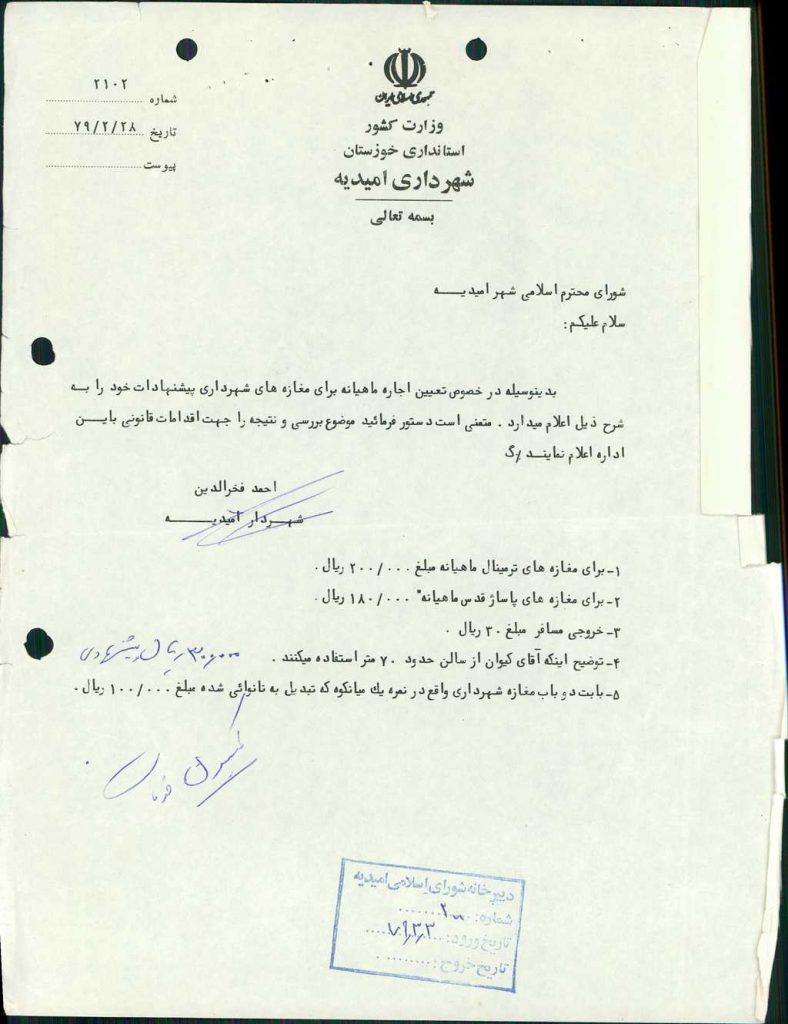 جمهوری اسلامی ایران
وزارت کشور
استانداری خوزستان
شهرداری امیدیه
بسمه تعالی
شماره ۲۱۰۲
تاریخ ۷۹/۲/۲۸
پیوست
شورای محترم اسلامی شهر امیدیــــه
سلام علیکم:
بدینوسیله در خصوص تعیین اجاره ماهیانه برای مغازه های شهرداری پیشنهادات خود را به
شرح ذیل اعلام میدارد . متمنی است دستور فرمائید موضوع بررسی و نتیجه را جهت اقدامات قانونی باین
اداره اعلام نمایند
احمد فخرالدین
شهردار امیدیــــه
۱-برای مغازه های ترمینال ماهیانه مبلغ ۲۰۰/۰۰۰ ریال .
۲-برای مغازه های پاساژ قدس ماهیانه " ۱۸۰/۰۰۰ ریال .
۳-خروجی مسافر مبلغ ۳۰ ریال .
۴-توضیح اینکه آقای کیوان از سالن حدود ۷۰ متر استفاده میکنند . ۳۰۰/۰۰۰ ریال پیشنهادی
۵-بابت دو باب مغازه شهرداری واقع در نمره یك میانکوه که تبدیل به نانوائی شده مبلغ ۱۰۰/۰۰۰ ریال .
دبیرخانه شورای اسلامی امیدیه
شماره:
تاریخ ورود: ۷۹/۳/۳
تاریخ خروج: